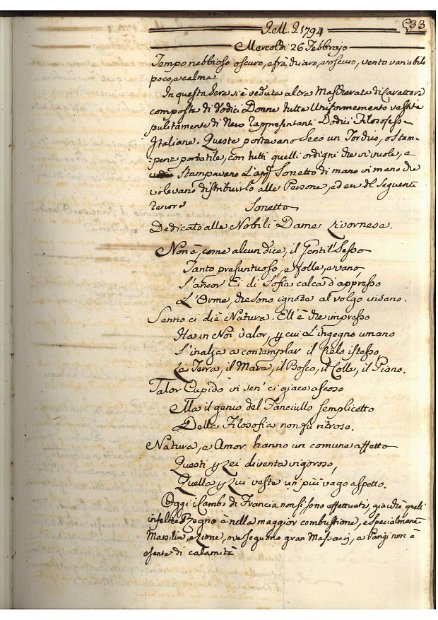 1794
Mercoldi 26 Febbrajo
Tempo nebbioso oscuro, e fra chiaro, e oscuro, vento variabile
poco, e calma.
In questa Sera si è veduta altra Mascherata di Carattere
composta di Dodici Donne tutte Uniformemente vestite
pulitamente di Nero rappresentanti Dodici Filosofesse
Italiane. Queste portavano seco un Torchio, o Stam-
peria portatile, con tutti quelli ordigni che si vuole, e
Stampavano Sonetto di mano in mano che
volevano distribuirlo alle Persone, ed era del Seguente
tenore Sonetto
Dedicato alle Nobili Dame Livornesi.
Non è, come alcun dice, il Gentil Sesso
Tanto presuntuoso, e folle, e vano
S'ancor Ei di Sofia calca d'appresso
L'Orme, che sono ignote al volgo insano.
Senno ci diè Natura. Ell'è che impresso
Ha in Noi valor, per cui L'ingegno umano
S'inalza a contemplar il Cielo istesso
La Terra, il Mare, il Bosco, il Colle, il Piano.
Talor Cupido vi sen' ci giace ascoso
Ma il genio del Fanciullo semplicetto
Delle Filosofia non fa ritroso.
Natura, e Amor hanno un comune affetto
Questi per Lei diventa vigoroso,
Quella per Lui veste un più vago aspetto.
Oggi i Cambi di Francia non si sono effettuati, giacchè quell'
infelice Regno è nella maggior combustione, e specialmente
Marsilia, e Lione, ove seguono gran Massacri, e Parigi non è
esente di calamità